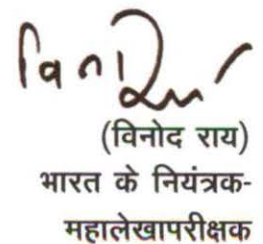 (विनोद राय)
भारत के नियंत्रक-
महालेखापरीक्षक